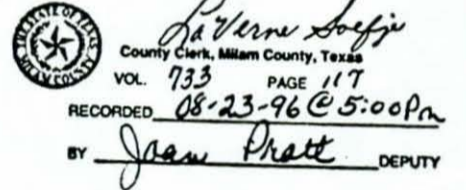 THE STATE OF TEXAS
MILAM COUNTY
La Verne Soefje
County Clerk, Milam County, Texas
VOL. 733 PAGE 117
RECORDED 08-23-96 @ 5:00 Pm
BY Joan Pratt DEPUTY